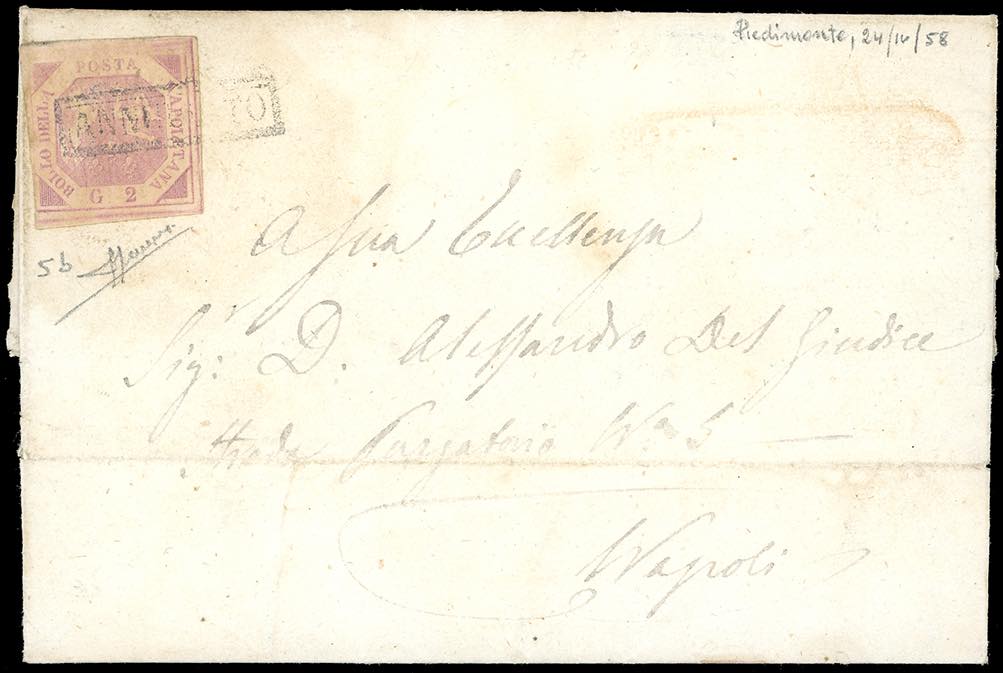 Piedimonte, 24/IV/58
POSTA
BOLLO DELLA
NAPOLETANA
G 2
ANNULLATO
5b
A Sua Eccellenza
Sig: D. Alessandro Del Giudice
Strada Purgatorio N° 5
Napoli